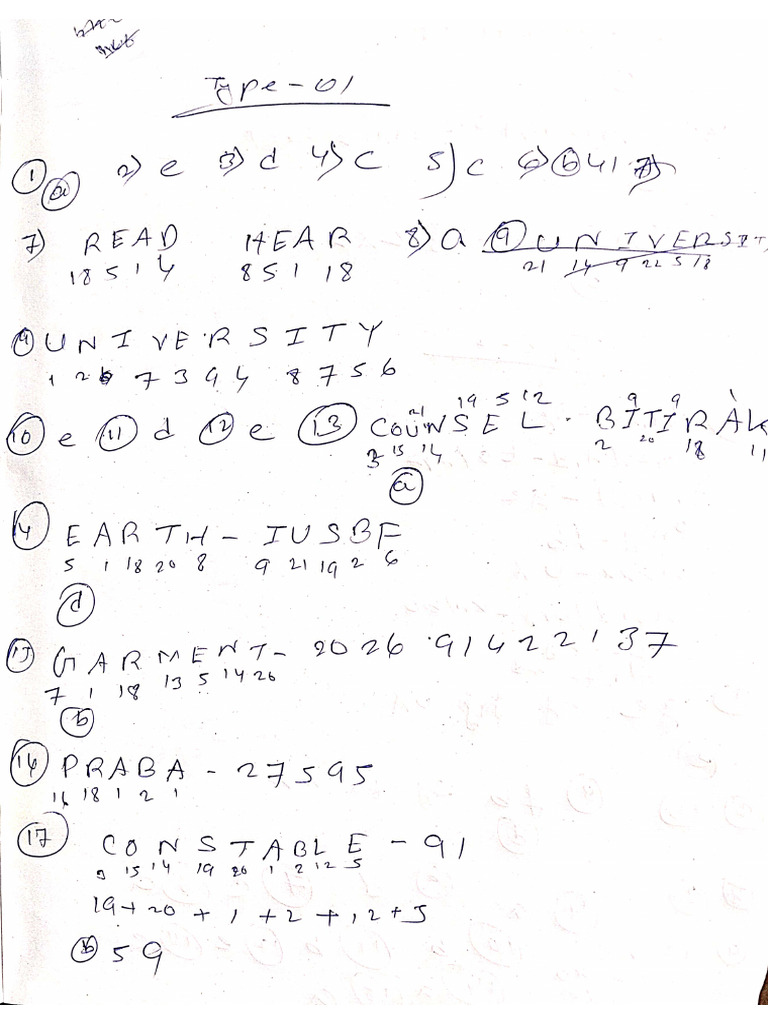 Type-01
1 a 2) e 3) d 4) c 5) c 6) b 41
7) READ HEAR 8) a 9 UNIVERSIT
18 5 1 4 8 5 1 18 21 14 9 22 5 18
9 UNIVERSITY
1 2 6 7 3 9 4 8 7 5 6
21 19 5 12 9 9 1
10 e 11 d 12 e 13 COUNSEL - BITIRAK
3 15 14 2 20 18 11
a
14 EARTH - IUSBF
5 1 18 20 8 9 21 19 2 6
d
15 GARMENT - 2026 91422137
7 1 18 13 5 14 20
b
16 PRABA - 27595
16 18 1 2 1
17 CONSTABLE - 91
3 15 14 19 20 1 2 12 5
19+20+1+2+12+5
b 59